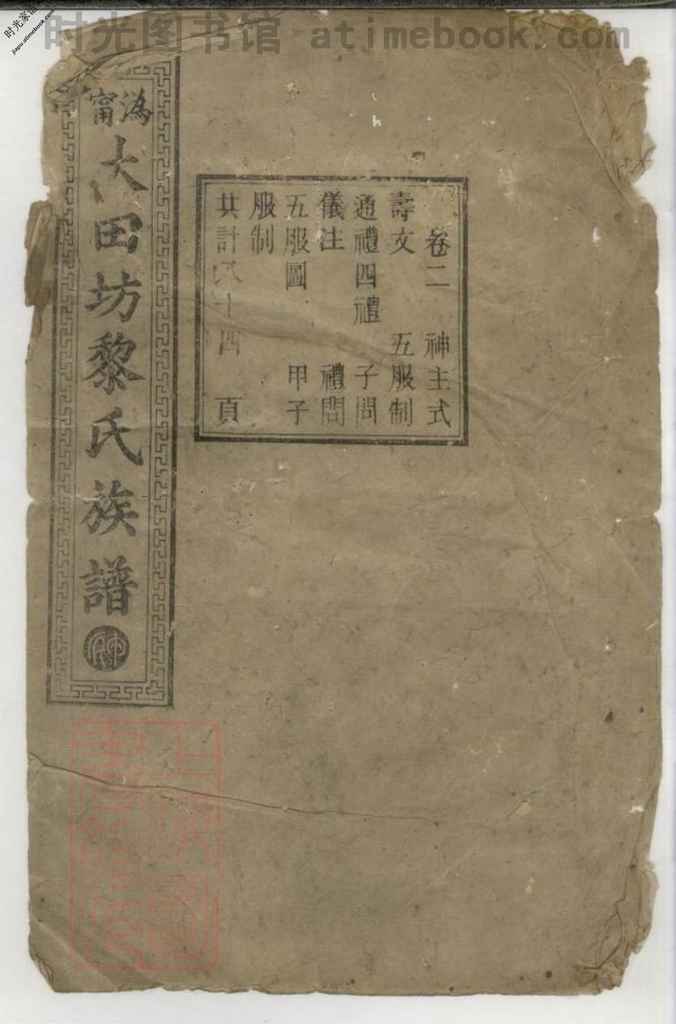 时光图书馆 atimebook.com
时光家谱
jiapu.atimebook.com
溈甯
大田坊黎氏族譜
卷二 神主式
壽文 五服制
通禮四禮 子問
儀注 禮問
五服圖 甲子
服制
共計 十四 頁